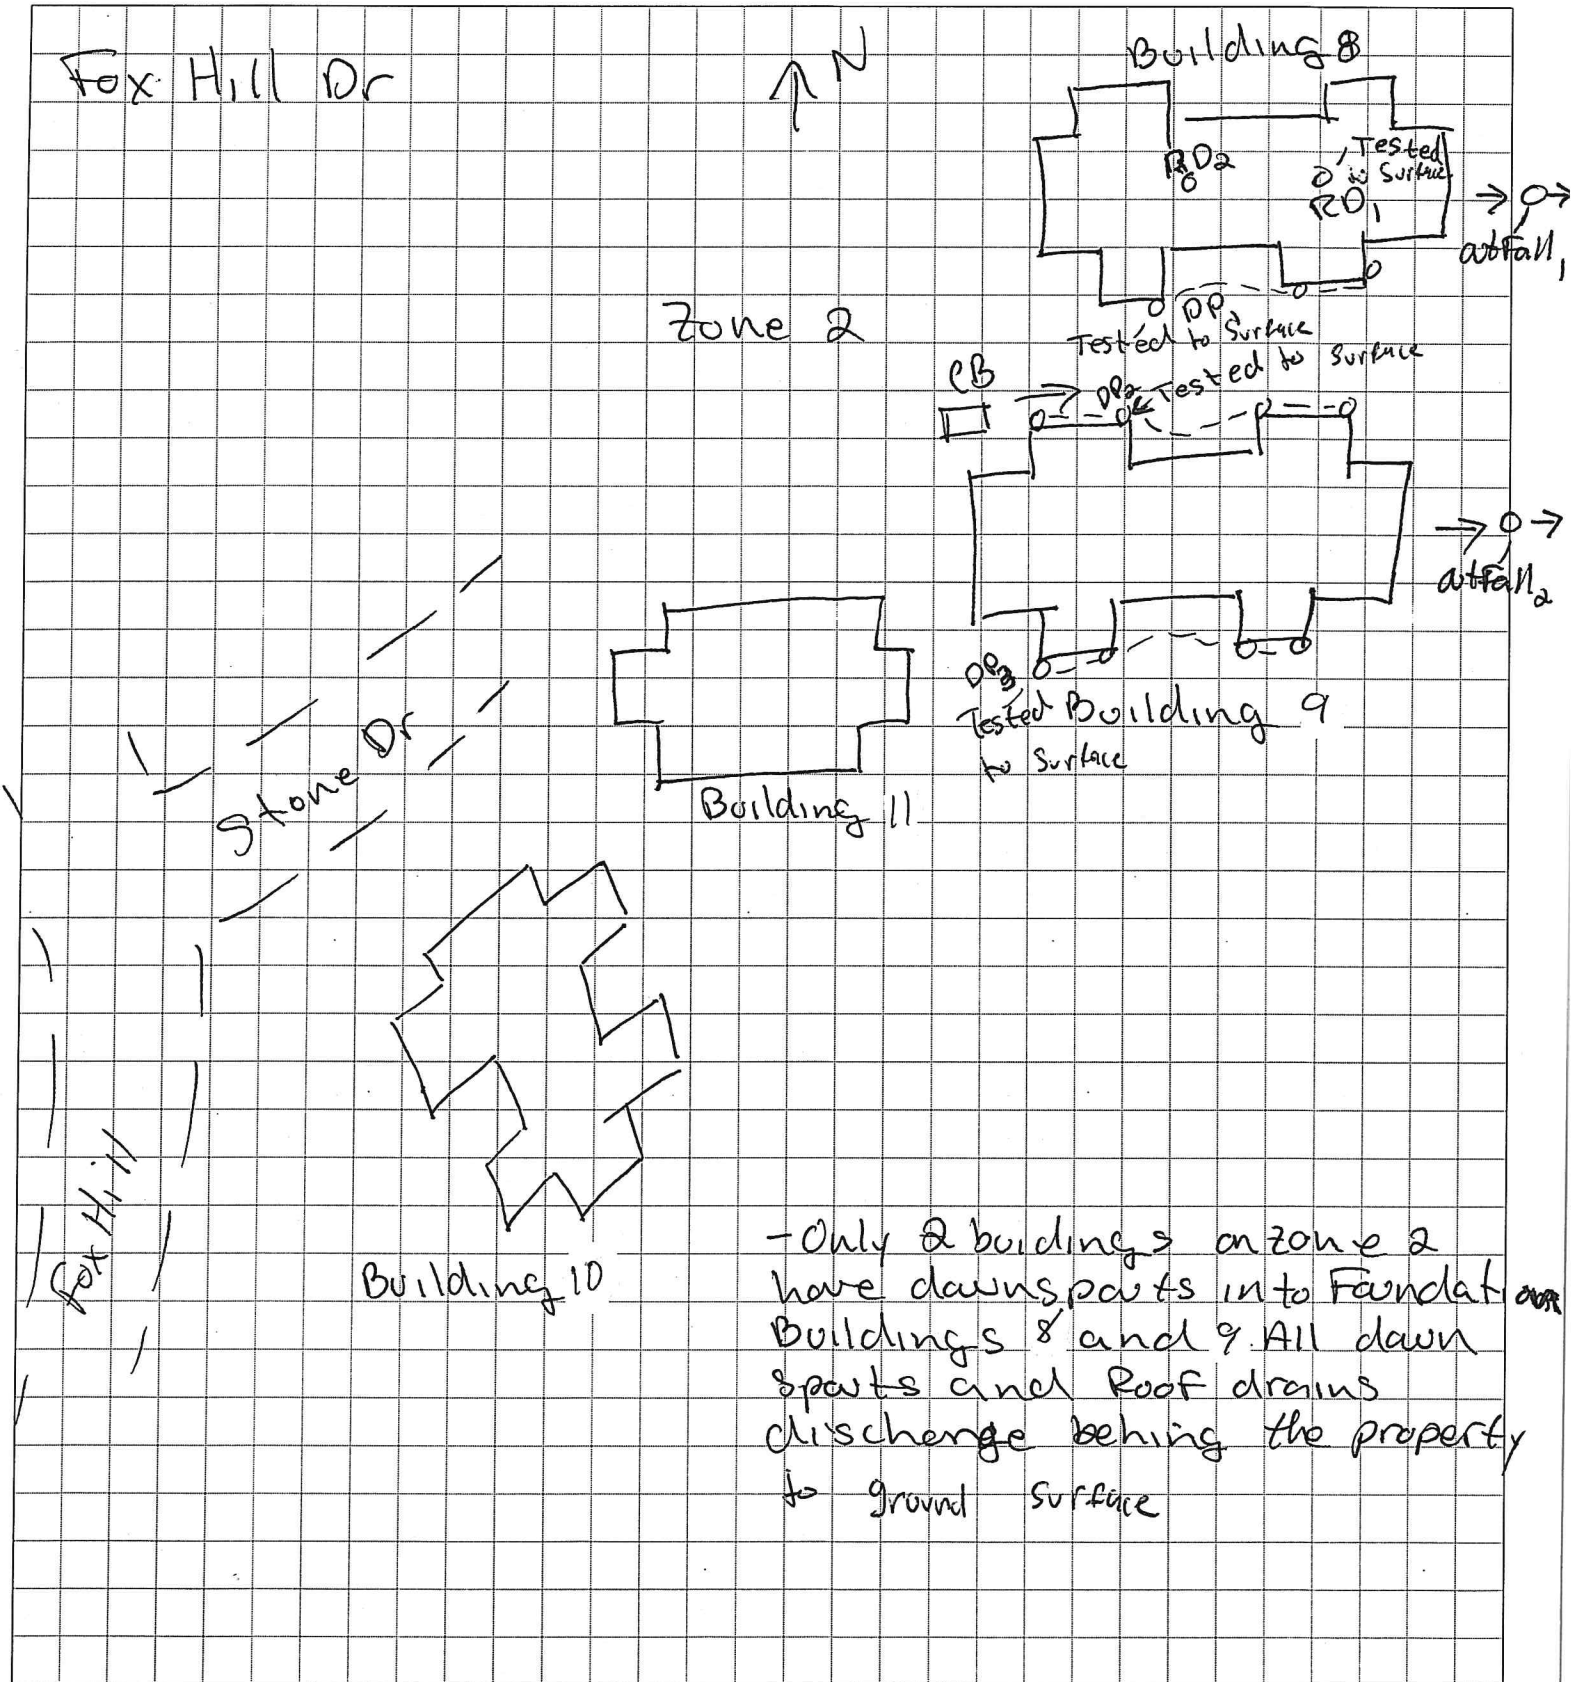 Fox Hill Dr
N
Building 8
RD2
Tested
to Surface
RD1
outFall1
DP1
Tested to Surface
Zone 2
CB
DP2
Tested to Surface
outFall2
DP3
Tested
to Surface
Building 9
Stone Dr
Building 11
Fox Hill
Building 10
- Only 2 buidings on zone 2
have downspouts into Foundation
Buildings 8 and 9. All down
spouts and Roof drains
discharge behing the property
to ground surface